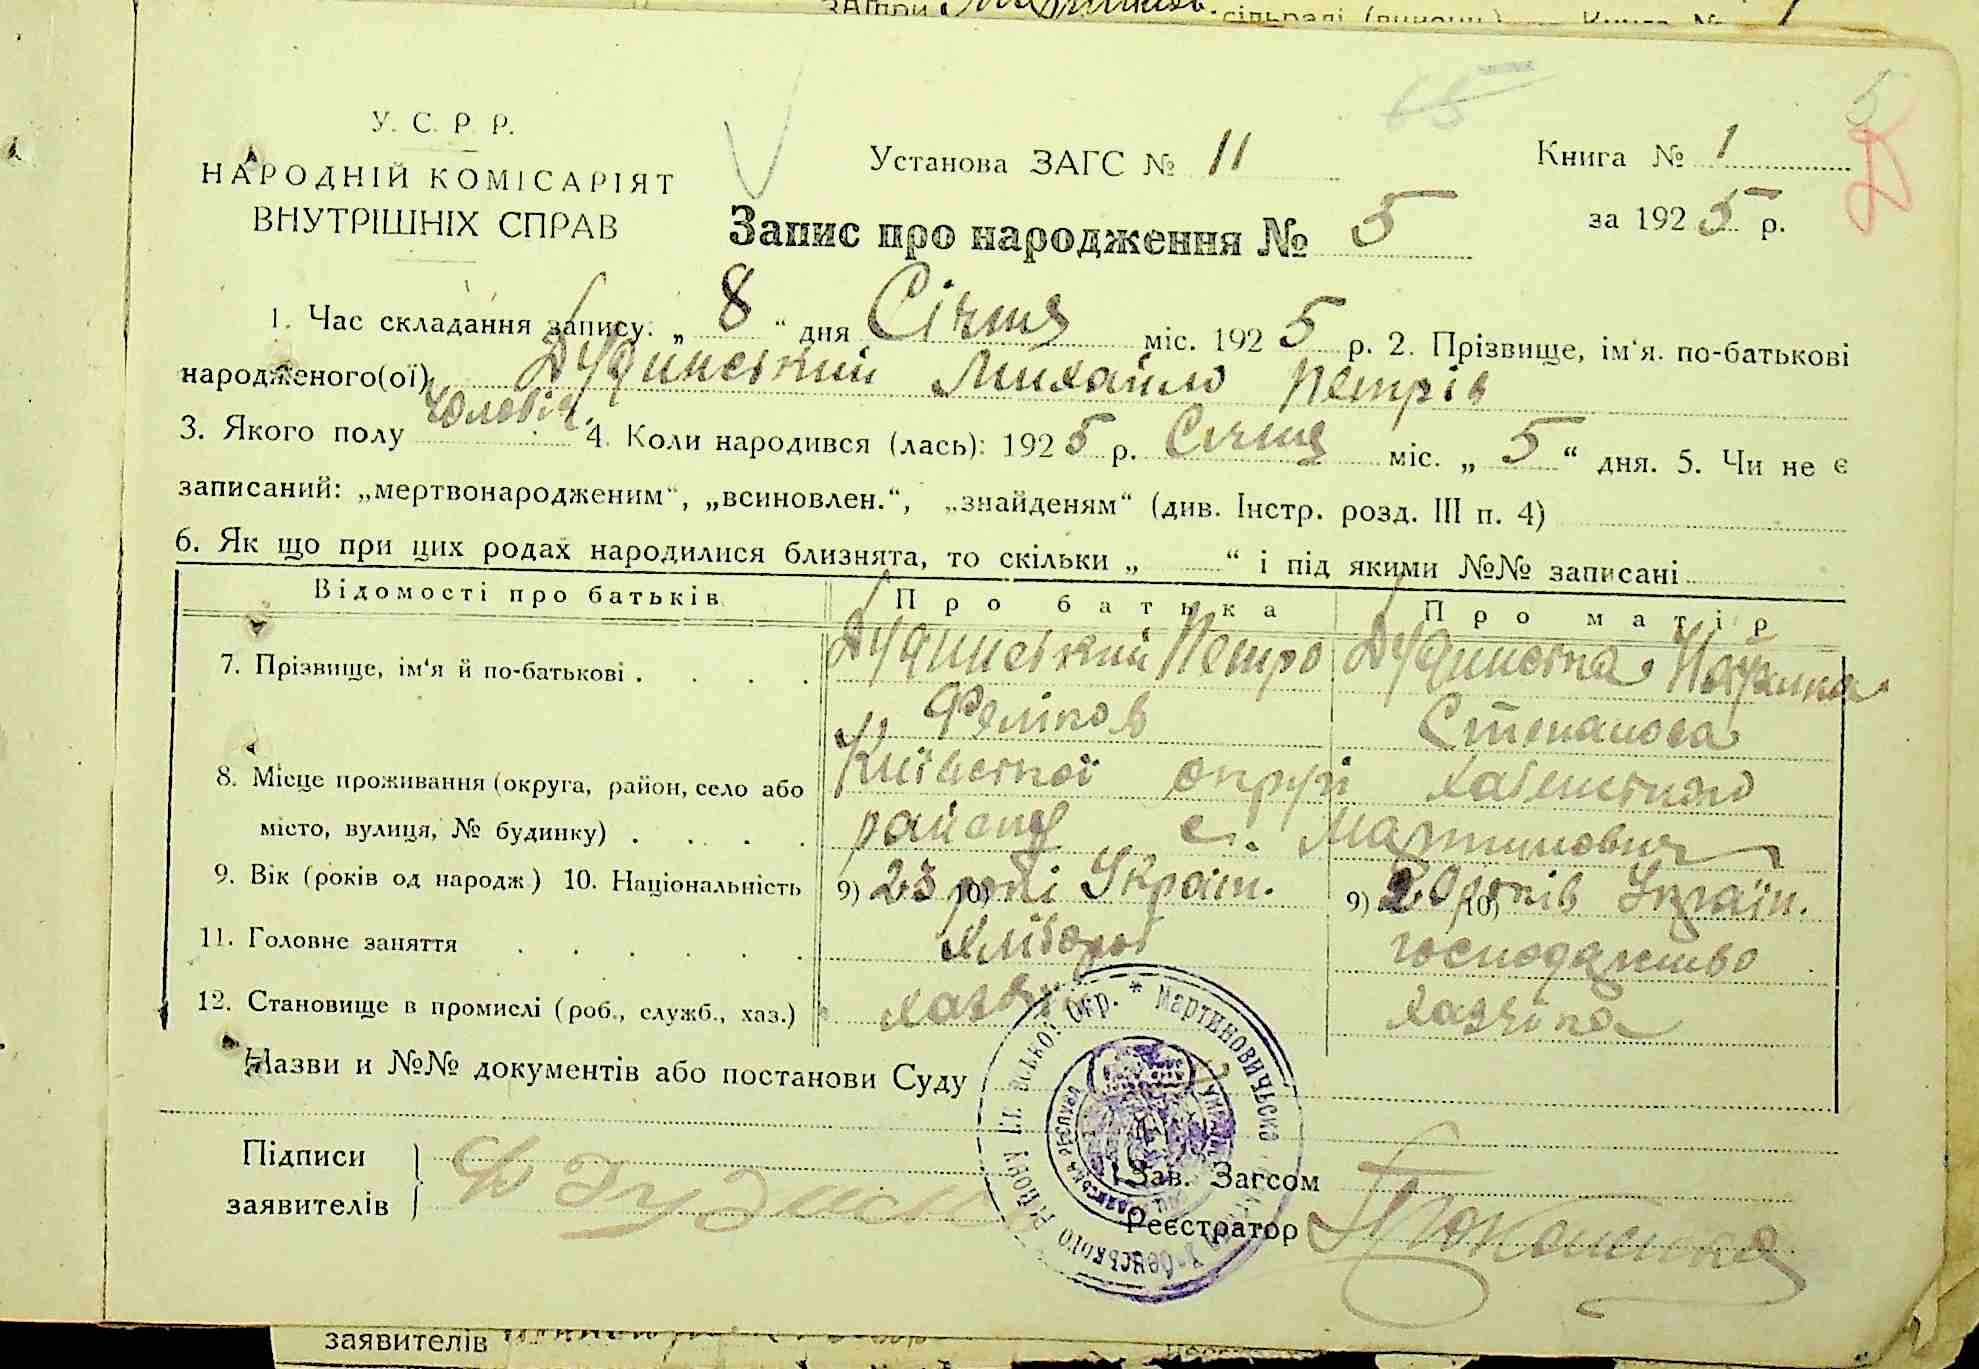 У. С. Р. Р.
НАРОДНІЙ КОМІСАРІЯТ
ВНУТРІШНІХ СПРАВ
Установа ЗАГС № 11
Книга № 1
за 1925 р.
5
Запис про народження № 5
1. Час складання запису: „8“ дня Січня міс. 1925 р. 2. Прізвище, ім‘я. по-батькові
народженого(ої) Дудинський Михайло Петрів
3. Якого полу Чоловіч. 4. Коли народився (лась): 1925 р. Січня міс. „5“ дня. 5. Чи не є
записаний: „мертвонародженим“, „всиновлен.“, „знайденям“ (див. Інстр. розд. III п. 4)
6. Як що при цих родах народилися близнята, то скільки „ “ і під якими №№ записані
Відомості про батьків Про батька Про матір
7. Прізвище, ім‘я й по-батькові . . . . Дудинський Петро Дудинська
Степанова
8. Місце проживання (округа, район, село або Київської округи Хабенського
місто, вулиця, № будинку) . . . . району с. Мартинович
9. Вік (років од народж.) 10. Національність 9) 23 10) рокі Україн. 9) 20 10) років Україн.
11. Головне заняття . . . . . Хлібороб господарство
12. Становище в промислі (роб., служб., хаз.) хазяїн хазяіна
Назви и №№ документів або постанови Суду
Підписи
заявителів
Зав. Загсом
Реєстратор
заявителів